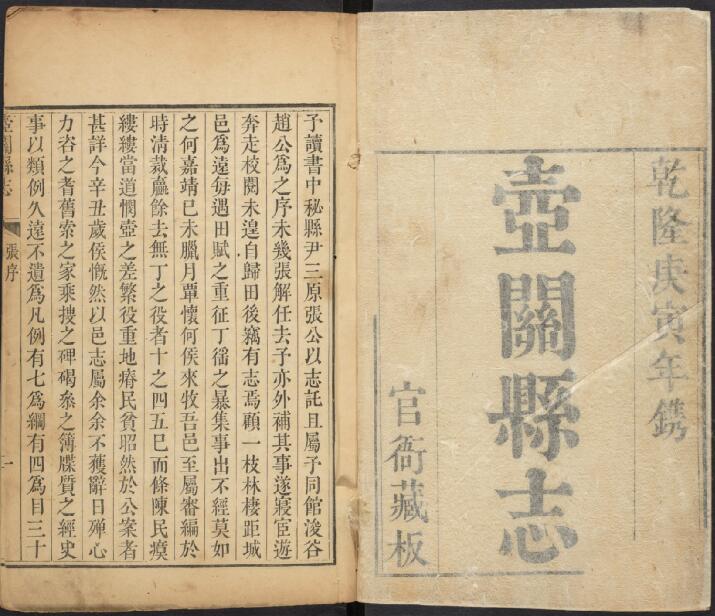 乾隆庚寅年鐫
壺關縣志
官衙藏板
予讀書中秘縣尹三原張公以志託且屬予同館浚谷
趙公為之序未幾張解任去予亦外補其事遂寢宦遊
奔走校閱未遑自歸田後竊有志焉顧一枝林棲距城
邑為遠每遇田賦之重征丁徭之暴集事出不經莫如
之何嘉靖己未臘月覃懷何侯來牧吾邑至屬審編於
時清裁羸餘去無丁之役者十之四五巳而條陳民瘼
縷縷當道憫壺之差繁役重地瘠民貧昭然於公案者
甚詳今辛丑歲侯慨然以邑志屬余余不獲辭日殫心
力咨之耆舊索之家乘搜之碑碣叅之簿牒質之經史
事以類例久遠不遺為凡例有七為綱有四為目三十
壺關縣志
張序
一